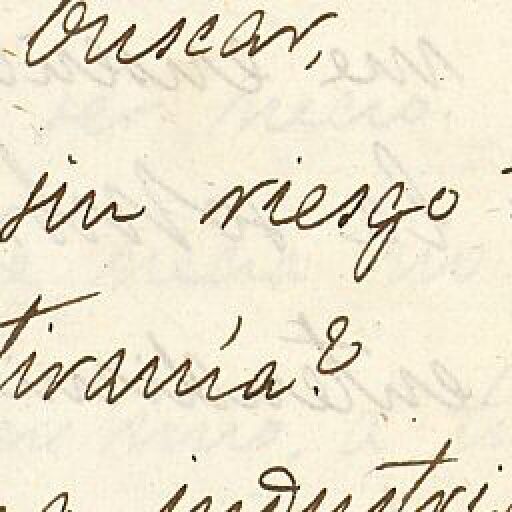 buscar,
sin riesgo
tiranía?
industri